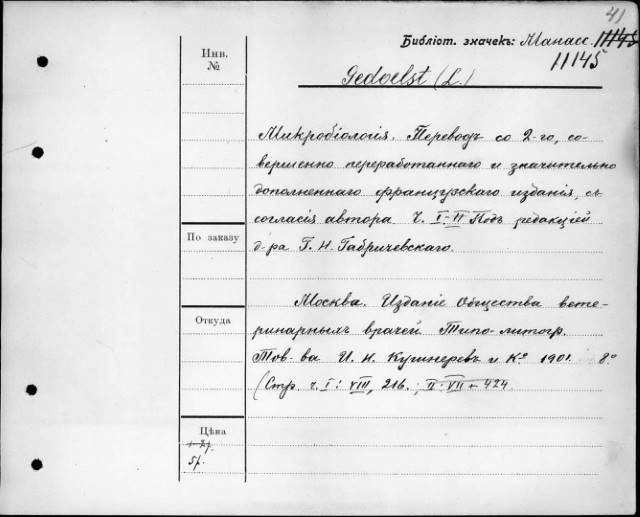 41
Библіот. значекъ: Манасс. 11145
11145
Инв.
№
Gedoelst (L.)
Микробіологія. Переводъ со 2-го, со-
вершенно переработаннаго и значительно
дополненнаго французскаго изданія, съ
согласія автора Ч. I-II Подъ редакціей
д-ра Г. Н. Габричевскаго.
По заказу
Москва. Изданіе Общества вете-
Откуда
ринарныхъ врачей Типо-литогр.
Тов-ва И. Н. Кушнеревъ и Кº 1901. 8º
(Стр. ч. I: VIII, 216.; II: VII + 424
Цѣна
1-2р.
5р.